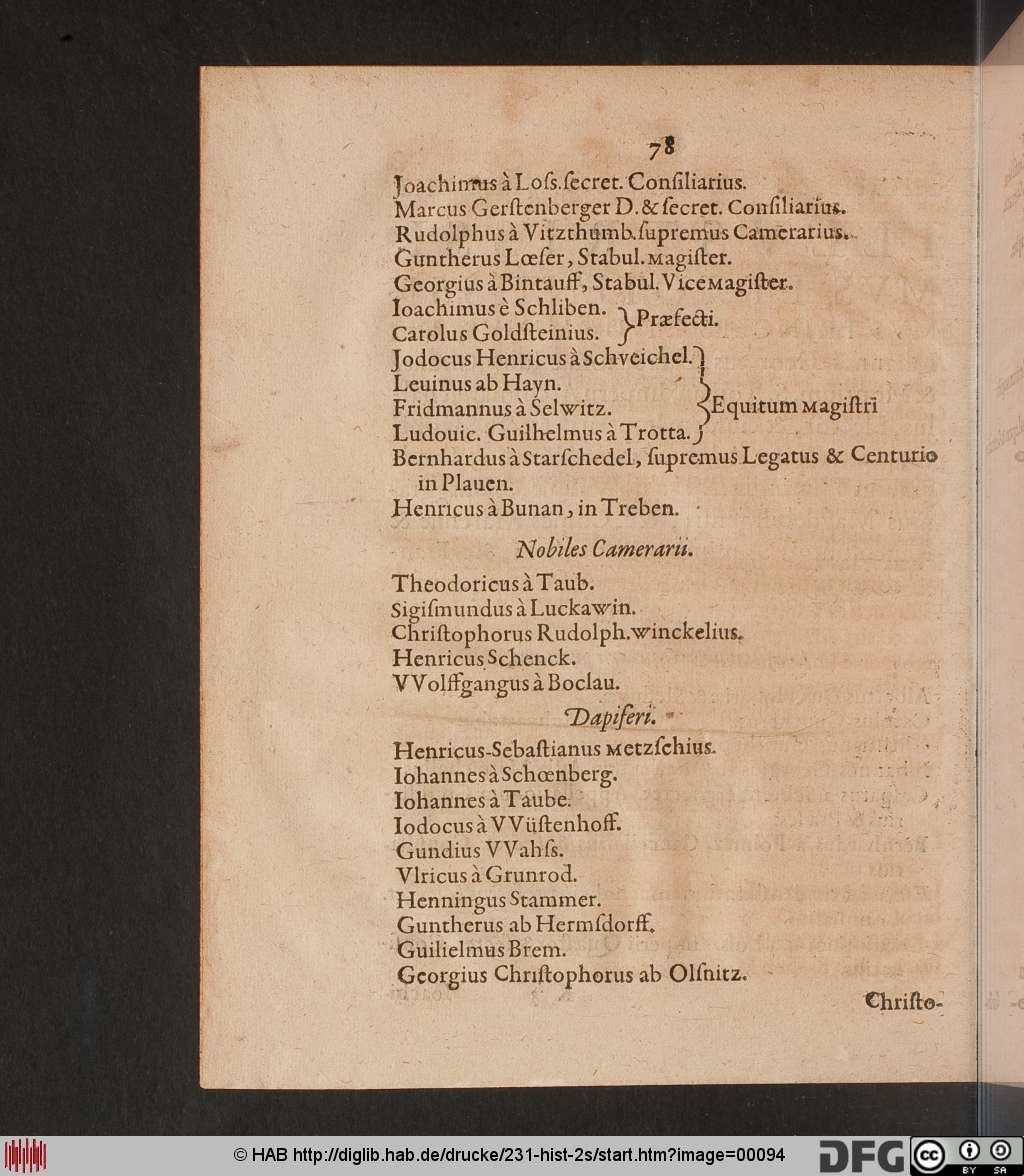 78
Joachimus à Loſs. ſecret. Conſiliarius.
Marcus Gerſtenberger D. & ſecret. Conſiliarius.
Rudolphus à Vitzthumb. ſupremus Camerarius.
Guntherus Lœſer, Stabul. Magiſter.
Georgius à Bintauff, Stabul. ViceMagiſter.
Ioachimus è Schliben.
Carolus Goldſteinius. } Præfecti.
Jodocus Henricus à Schveichel.
Leuinus ab Hayn.
Fridmannus à Selwitz. } Equitum Magiſtri
Ludouic. Guilhelmus à Trotta.
Bernhardus à Starſchedel, ſupremus Legatus & Centurio
in Plauen.
Henricus à Bunan, in Treben.
Nobiles Camerarii.
Theodoricus à Taub.
Sigiſmundus à Luckawin.
Chriſtophorus Rudolph. Winckelius.
Henricus Schenck.
VVolffgangus à Boclau.
Dapiferi.
Henricus-Sebaſtianus Metzſchius.
Iohannes à Schœnberg.
Iohannes à Taube.
Iodocus à VVüſtenhoff.
Gundius VVahſs.
Vlricus à Grunrod.
Henningus Stammer.
Guntherus ab Hermſdorff.
Guilielmus Brem.
Georgius Chriſtophorus ab Olſnitz.
Chriſto-
© HAB http://diglib.hab.de/drucke/231-hist-2s/start.htm?image=00094
DFG
cc
BY SA